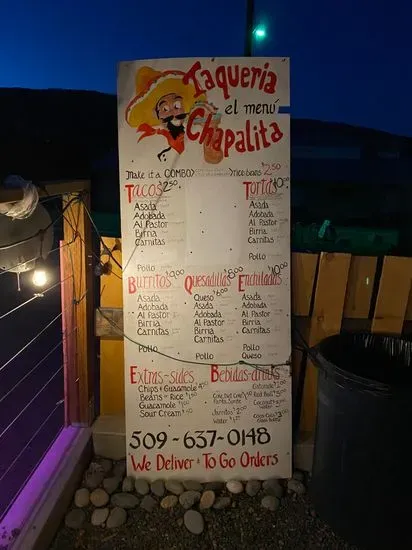 Taqueria
el menú
Chapalita
Make it a COMBO? rice beans $2.50
Tacos $2.50
Asada
Adobada
Al Pastor
Birria
Carnitas
Pollo
Tortas $10.00
Asada
Adobada
Al Pastor
Birria
Carnitas
Pollo
Burritos
Asada
Adobada
Al Pastor
Birria
Carnitas
Pollo
Quesadillas $8.00
Queso $6.00
Asada
Adobada
Al Pastor
Birria
Carnitas
Pollo
Enchiladas $10.00
Asada
Adobada
Al Pastor
Birria
Carnitas
Pollo
Queso
Extras-sides
Chips & Guacamole
Beans or Rice
Guacamole
Sour Cream
Bebidas-drinks
Jarritos
Water
Red Bull
Coconut
water
509-637-0148
We Deliver + To Go Orders